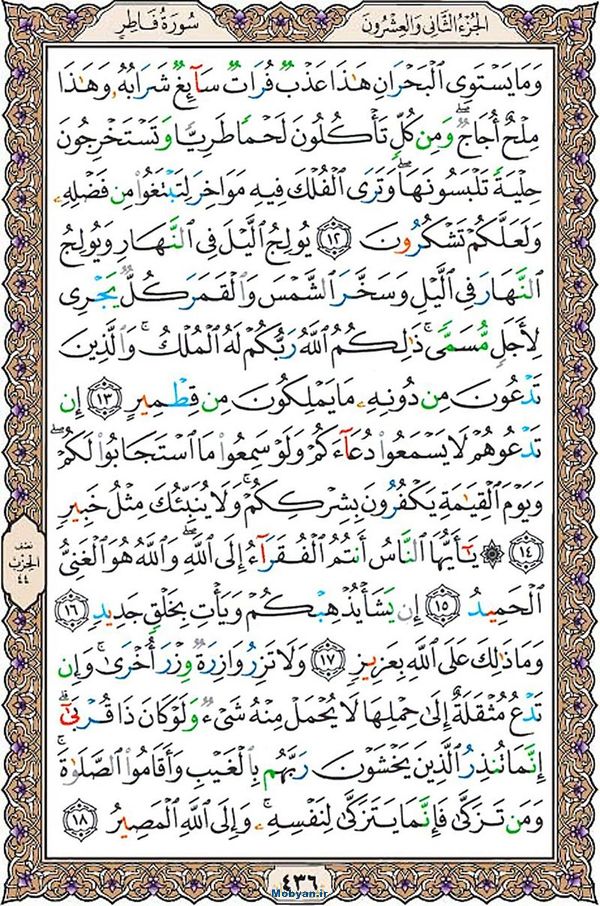 الجزء الثاني والعشرون
سورة فاطر
وَمَا يَسْتَوِي الْبَحْرَانِ هَٰذَا عَذْبٌ فُرَاتٌ سَائِغٌ شَرَابُهُ وَهَٰذَا
مِلْحٌ أُجَاجٌ ۖ وَمِن كُلٍّ تَأْكُلُونَ لَحْمًا طَرِيًّا وَتَسْتَخْرِجُونَ
حِلْيَةً تَلْبَسُونَهَا ۖ وَتَرَى الْفُلْكَ فِيهِ مَوَاخِرَ لِتَبْتَغُوا مِن فَضْلِهِ
وَلَعَلَّكُمْ تَشْكُرُونَ ﴿١٢﴾ يُولِجُ اللَّيْلَ فِي النَّهَارِ وَيُولِجُ
النَّهَارَ فِي اللَّيْلِ وَسَخَّرَ الشَّمْسَ وَالْقَمَرَ كُلٌّ يَجْرِي
لِأَجَلٍ مُّسَمًّى ۚ ذَٰلِكُمُ اللَّهُ رَبُّكُمْ لَهُ الْمُلْكُ ۚ وَالَّذِينَ
تَدْعُونَ مِن دُونِهِ مَا يَمْلِكُونَ مِن قِطْمِيرٍ ﴿١٣﴾ إِن
تَدْعُوهُمْ لَا يَسْمَعُوا دُعَاءَكُمْ وَلَوْ سَمِعُوا مَا اسْتَجَابُوا لَكُمْ ۖ
وَيَوْمَ الْقِيَامَةِ يَكْفُرُونَ بِشِرْكِكُمْ ۚ وَلَا يُنَبِّئُكَ مِثْلُ خَبِيرٍ
﴿١٤﴾ ۞ يَا أَيُّهَا النَّاسُ أَنتُمُ الْفُقَرَاءُ إِلَى اللَّهِ ۖ وَاللَّهُ هُوَ الْغَنِيُّ
الْحَمِيدُ ﴿١٥﴾ إِن يَشَأْ يُذْهِبْكُمْ وَيَأْتِ بِخَلْقٍ جَدِيدٍ ﴿١٦﴾
وَمَا ذَٰلِكَ عَلَى اللَّهِ بِعَزِيزٍ ﴿١٧﴾ وَلَا تَزِرُ وَازِرَةٌ وِزْرَ أُخْرَىٰ ۚ وَإِن
تَدْعُ مُثْقَلَةٌ إِلَىٰ حِمْلِهَا لَا يُحْمَلْ مِنْهُ شَيْءٌ وَلَوْ كَانَ ذَا قُرْبَىٰ ۗ
إِنَّمَا تُنذِرُ الَّذِينَ يَخْشَوْنَ رَبَّهُم بِالْغَيْبِ وَأَقَامُوا الصَّلَاةَ ۚ
وَمَن تَزَكَّىٰ فَإِنَّمَا يَتَزَكَّىٰ لِنَفْسِهِ ۚ وَإِلَى اللَّهِ الْمَصِيرُ ﴿١٨﴾
نصف
الحزب
٤٤
٤٣٦
Mobyan.ir